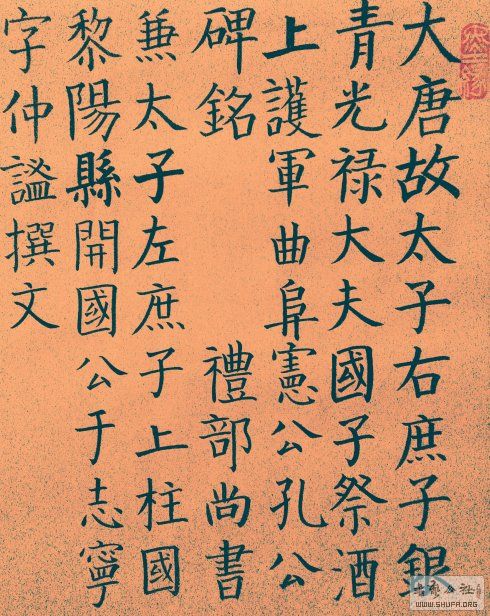 大唐故太子右庶子銀
青光禄大夫國子祭酒
上護軍曲阜憲公孔公
碑銘 禮部尚書
兼太子左庶子上柱國
黎陽縣開國公于志寧
字仲謐撰文
WWW.SHUFA.ORG